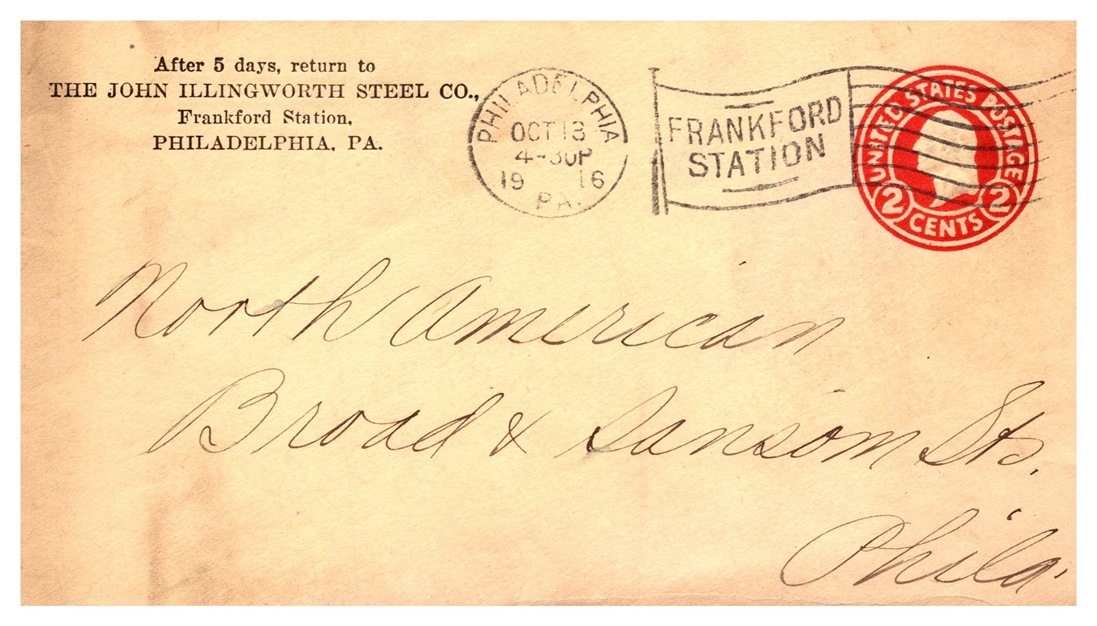 After 5 days, return to
THE JOHN ILLINGWORTH STEEL CO.,
Frankford Station,
PHILADELPHIA, PA.
PHILADELPHIA
OCT 13
4-30P
19 16
PA.
FRANKFORD
STATION
UNITED STATES POSTAGE
2 CENTS 2
North American
Broad & Sansom Sts.
Phila.